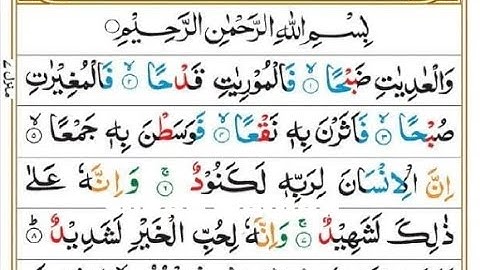 بِسْمِ اللهِ الرَّحْمٰنِ الرَّحِيْمِ
وَالْعٰدِيٰتِ ضَبْحًا ۙ‏﴿۱﴾ فَالْمُوْرِيٰتِ قَدْحًا ۙ‏﴿۲﴾ فَالْمُغِيْرٰتِ
صُبْحًا ۙ‏﴿۳﴾ فَاَثَرْنَ بِهٖ نَقْعًا ۙ‏﴿۴﴾ فَوَسَطْنَ بِهٖ جَمْعًا ۙ‏﴿۵﴾
اِنَّ الْاِنْسَانَ لِرَبِّهٖ لَكَنُوْدٌ ۚ‏﴿۶﴾ وَاِنَّهٗ عَلٰى
ذٰلِكَ لَشَهِيْدٌ ۚ‏﴿۷﴾ وَاِنَّهٗ لِحُبِّ الْخَيْرِ لَشَدِيْدٌ ؕ‏﴿۸﴾
منزل ۷